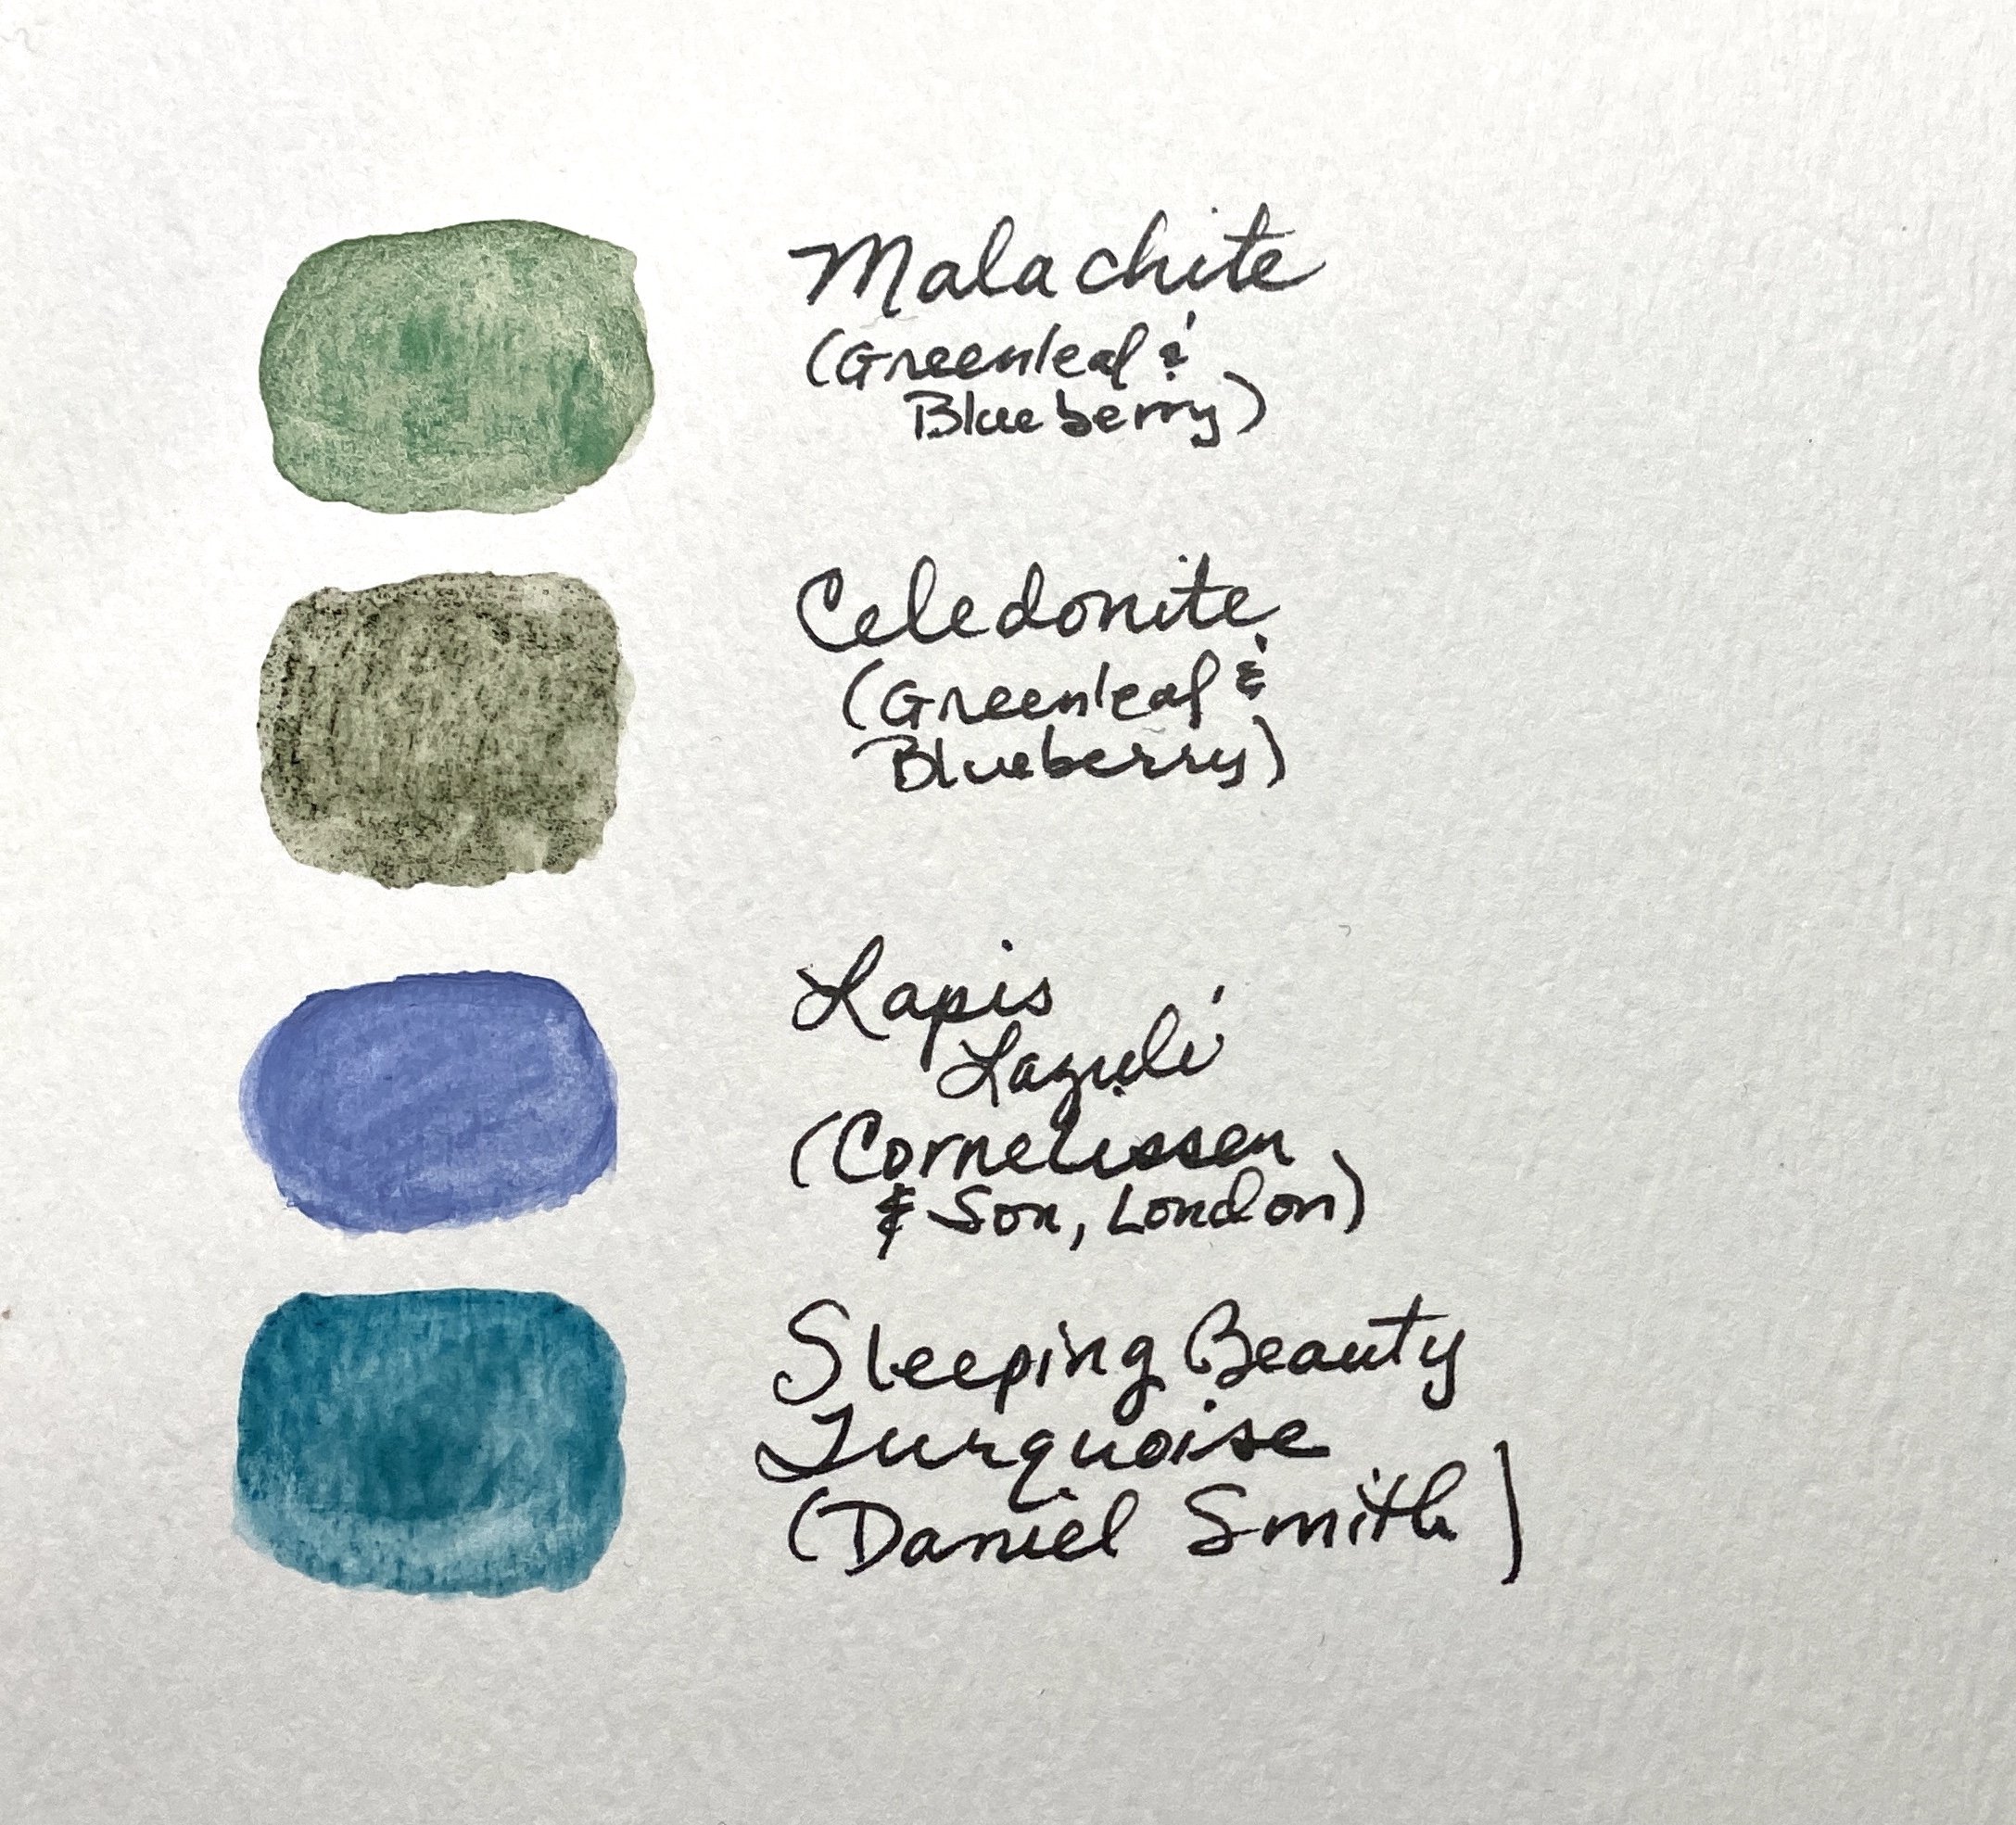 Malachite
(Greenleaf &
Blueberry)
Celedonite
(Greenleaf &
Blueberry)
Lapis
Lazuli
(Cornelissen
& Son, London)
Sleeping Beauty
Turquoise
(Daniel Smith)